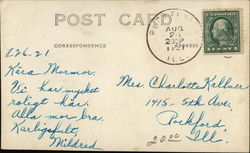 POST CARD
CORRESPONDENCE
ADDRESS
AUG
ILL.
8-26-21
Kära Mormor:
Vi har mycket
roligt här.
Alla mår bra.
Mildred
Mrs. Charlotte Kallner
1415-5th Ave,
Rockford,
Ill.
20.00